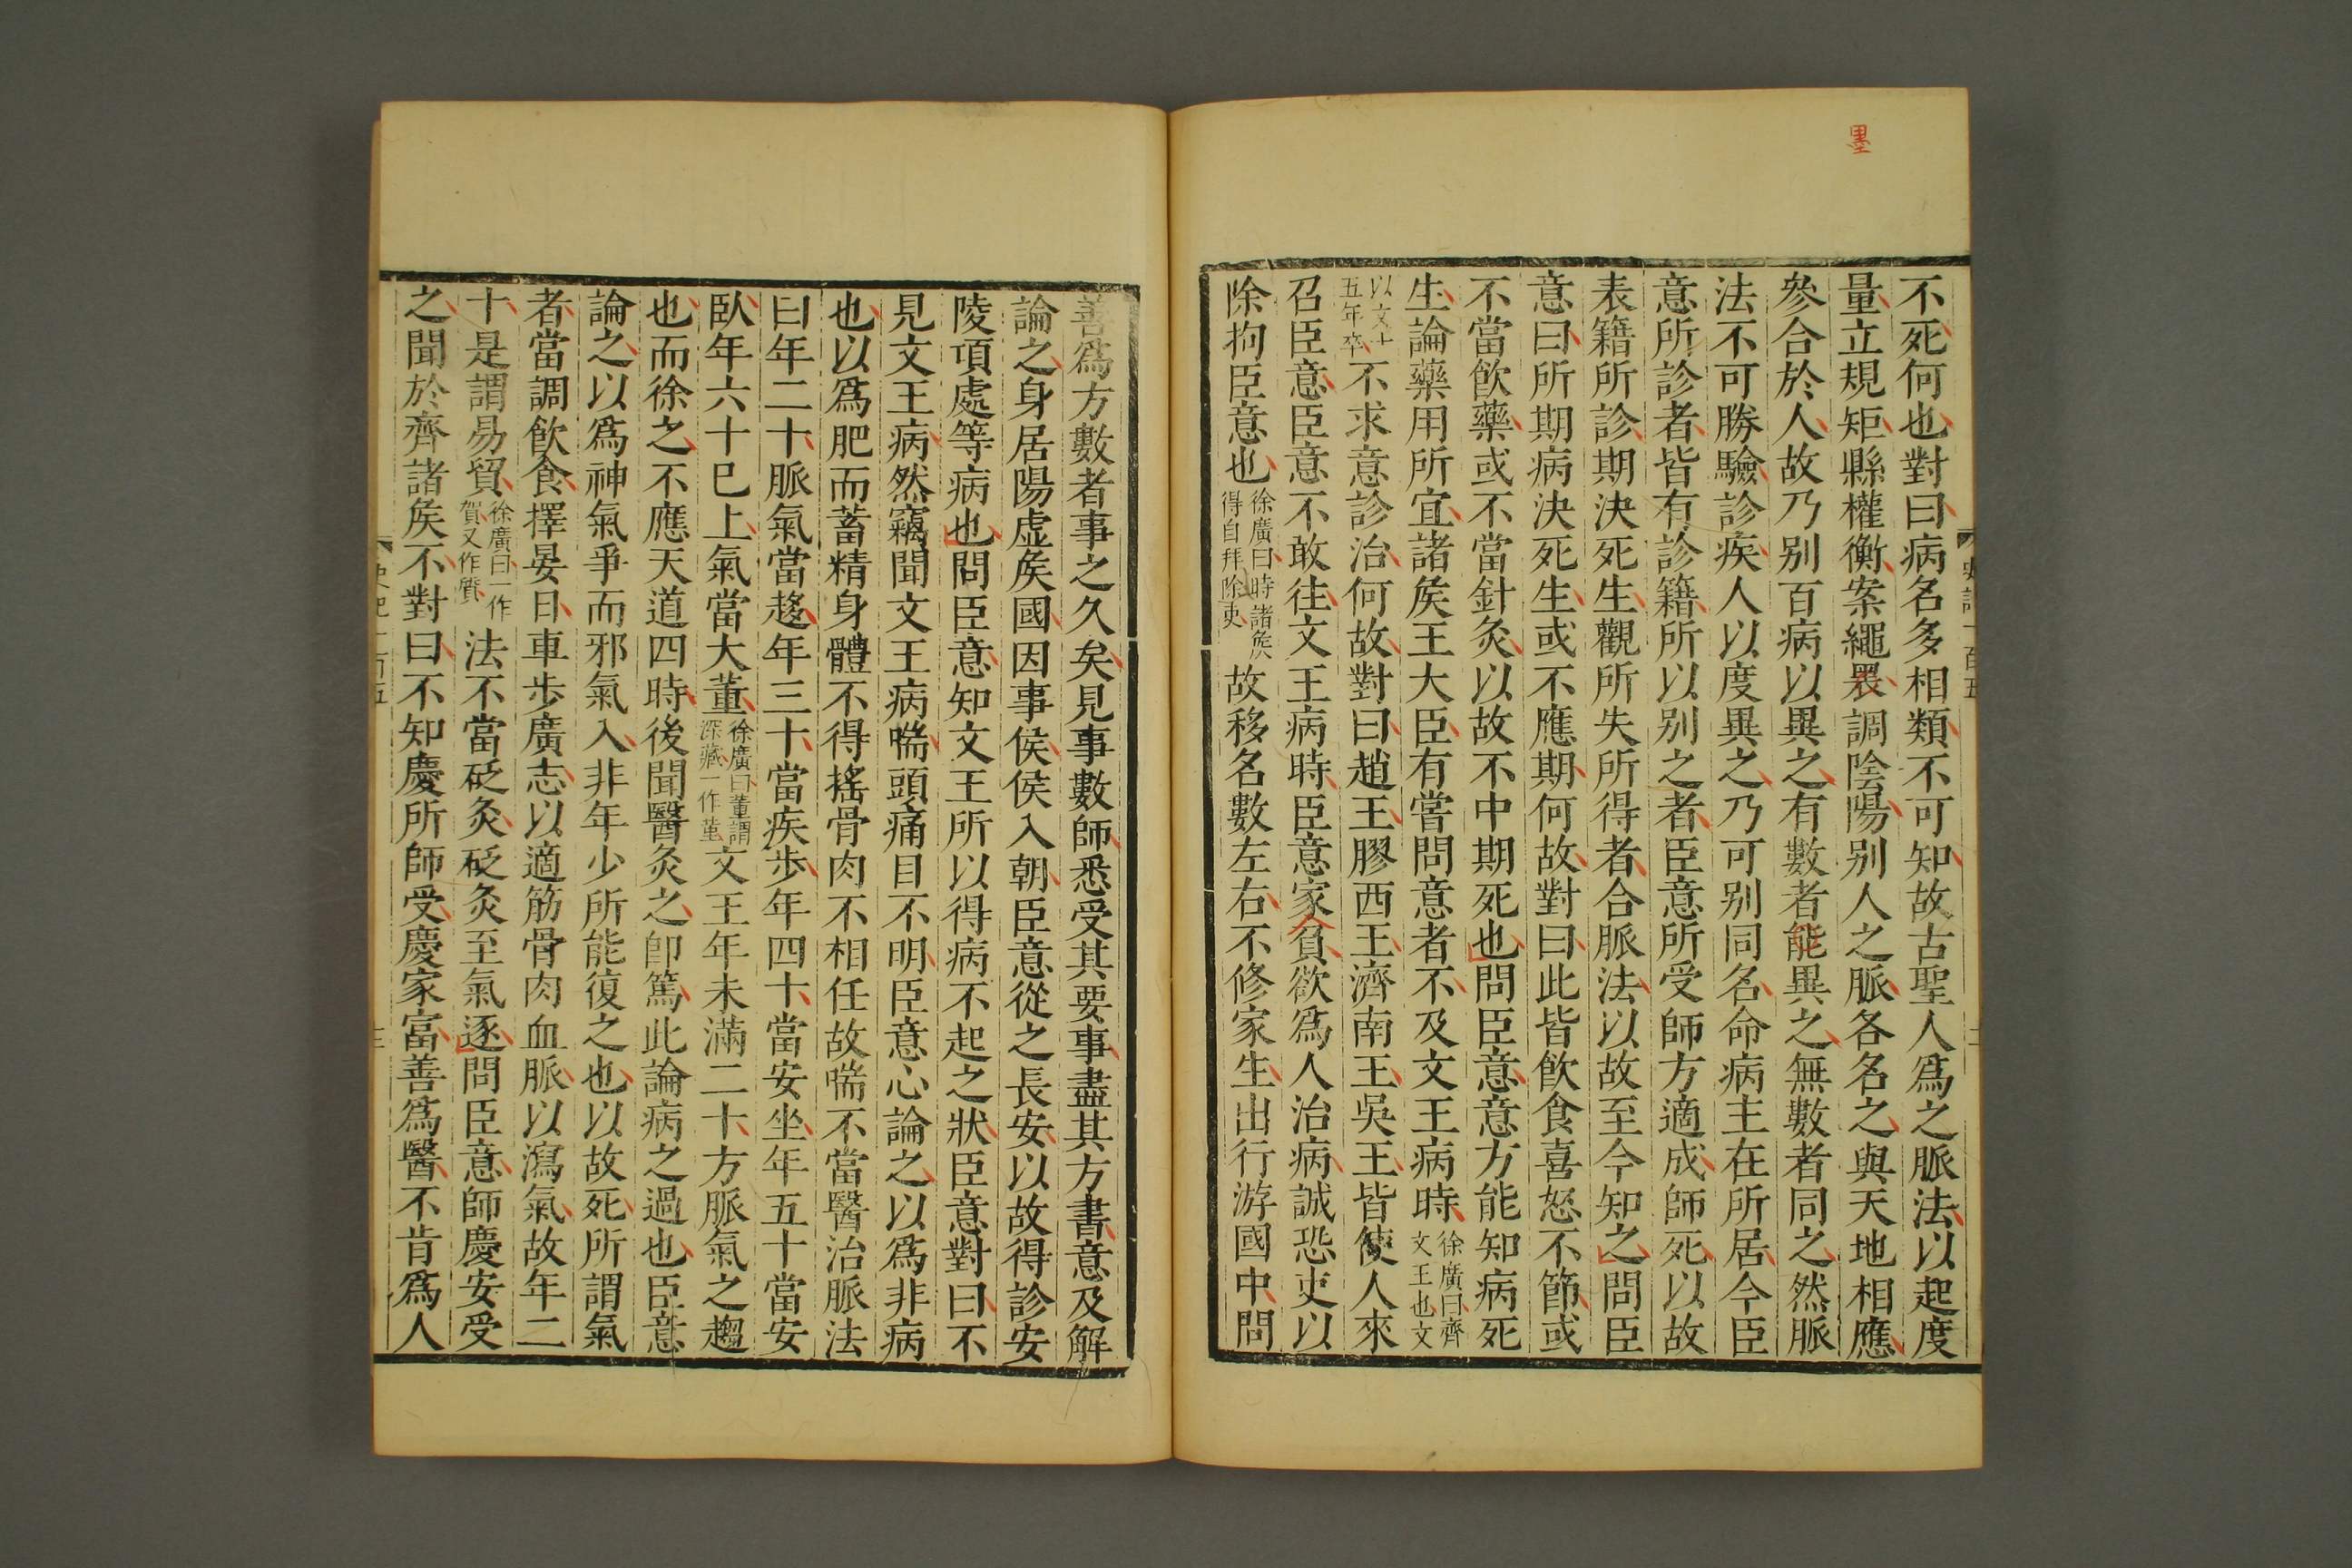 墨
不死何也對曰病名多相類不可知故古聖人爲之脈法以起度
量立規矩縣權衡案繩墨調陰陽别人之脈各名之與天地相應
參合於人故乃别百病以異之有數者能異之無數者同之然脈
法不可勝驗診疾人以度異之乃可别同名命病主在所居今臣
意所診者皆有診籍所以别之者臣意所受師方適成師死以故
表籍所診期決死生觀所失所得者合脈法以故至今知之問臣
意曰所期病決死生或不應期何故對曰此皆飲食喜怒不節或
不當飮藥或不當針灸以故不中期死也問臣意意方能知病死
生論藥用所宜諸矦王大臣有嘗問意者不及文王病時徐廣曰齊文王也文
以文十五年卒不求意診治何故對曰趙王膠西王濟南王吳王皆使人來
召臣意臣意不敢往文王病時臣意家貧欲爲人治病誠恐吏以
除拘臣意也徐廣曰時諸矦得自拜除吏故移名數左右不修家生出行游國中問
善爲方數者事之久矣見事數師悉受其要事盡其方書意及解
論之身居陽虚矦國因事侯侯入朝臣意從之長安以故得診安
陵項處等病也問臣意知文王所以得病不起之狀臣意對曰不
見文王病然竊聞文王病喘頭痛目不明臣意心論之以爲非病
也以爲肥而蓄精身體不得搖骨肉不相任故喘不當醫治脈法
曰年二十脈氣當趍年三十當疾步年四十當安坐年五十當安
臥年六十已上氣當大董徐廣曰董謂深藏一作堇文王年未滿二十方脈氣之趨
也而徐之不應天道四時後聞醫灸之卽篤此論病之過也臣意
論之以爲神氣爭而邪氣入非年少所能復之也以故死所謂氣
者當調飲食擇晏日車步廣志以適筋骨肉血脈以瀉氣故年二
十是謂易貿徐廣曰一作賀又作質法不當砭灸砭灸至氣逐問臣意師慶安受
之聞於齊諸矦不對曰不知慶所師受慶家富善爲醫不肯爲人